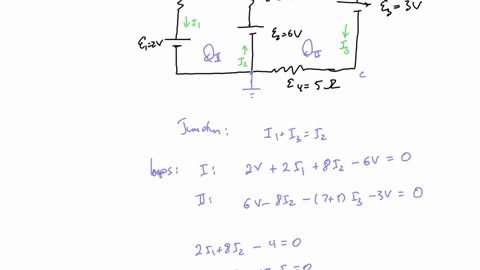 ℰ₃ = 3V
↓I₁
I₃
ℰ₁=2V
ℰ₂=6V
I₂
I
II
ℰ₄ = 5Ω
c
Junction: I₁+I₃=I₂
loops: I: 2V + 2I₁ + 8I₂ - 6V = 0
II: 6V - 8I₂ - (7+5) I₃ - 3V = 0
2I₁+8I₂ - 4 = 0